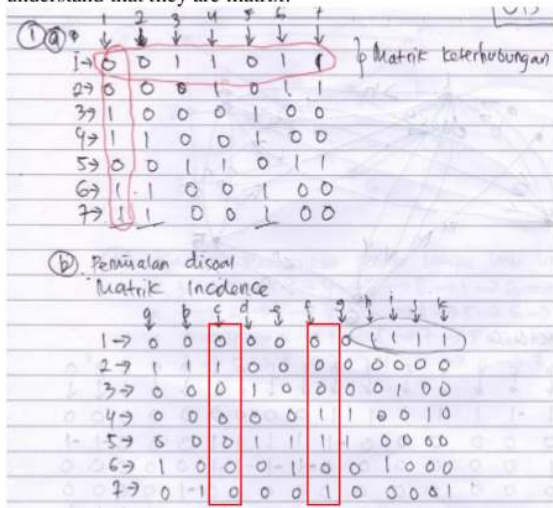 understand that they are matrix.
1 2 3 4 5 6 7
1 a
1→ 0 0 1 1 0 1 1 } Matrik keterhubungan
2→ 0 0 0 1 0 1 1
3→ 1 0 0 0 1 0 0
4→ 1 1 0 0 1 0 0
5→ 0 0 1 1 0 1 1
6→ 1 1 0 0 1 0 0
7→ 1 1 0 0 1 0 0
b Pemisalan disoal
Matrik Incdence
a b c d e f g h i j k
1→ 0 0 0 0 0 0 0 1 1 1 1
2→ 1 1 1 0 0 0 0 0 0 0 0
3→ 0 0 0 1 0 0 0 0 1 0 0
4→ 0 0 0 0 0 1 1 0 0 1 0
5→ 0 0 0 1 1 1 1 0 0 0 0
6→ 1 0 0 0 -1 0 0 1 0 0 0
7→ 0 -1 0 0 0 1 0 0 0 0 1